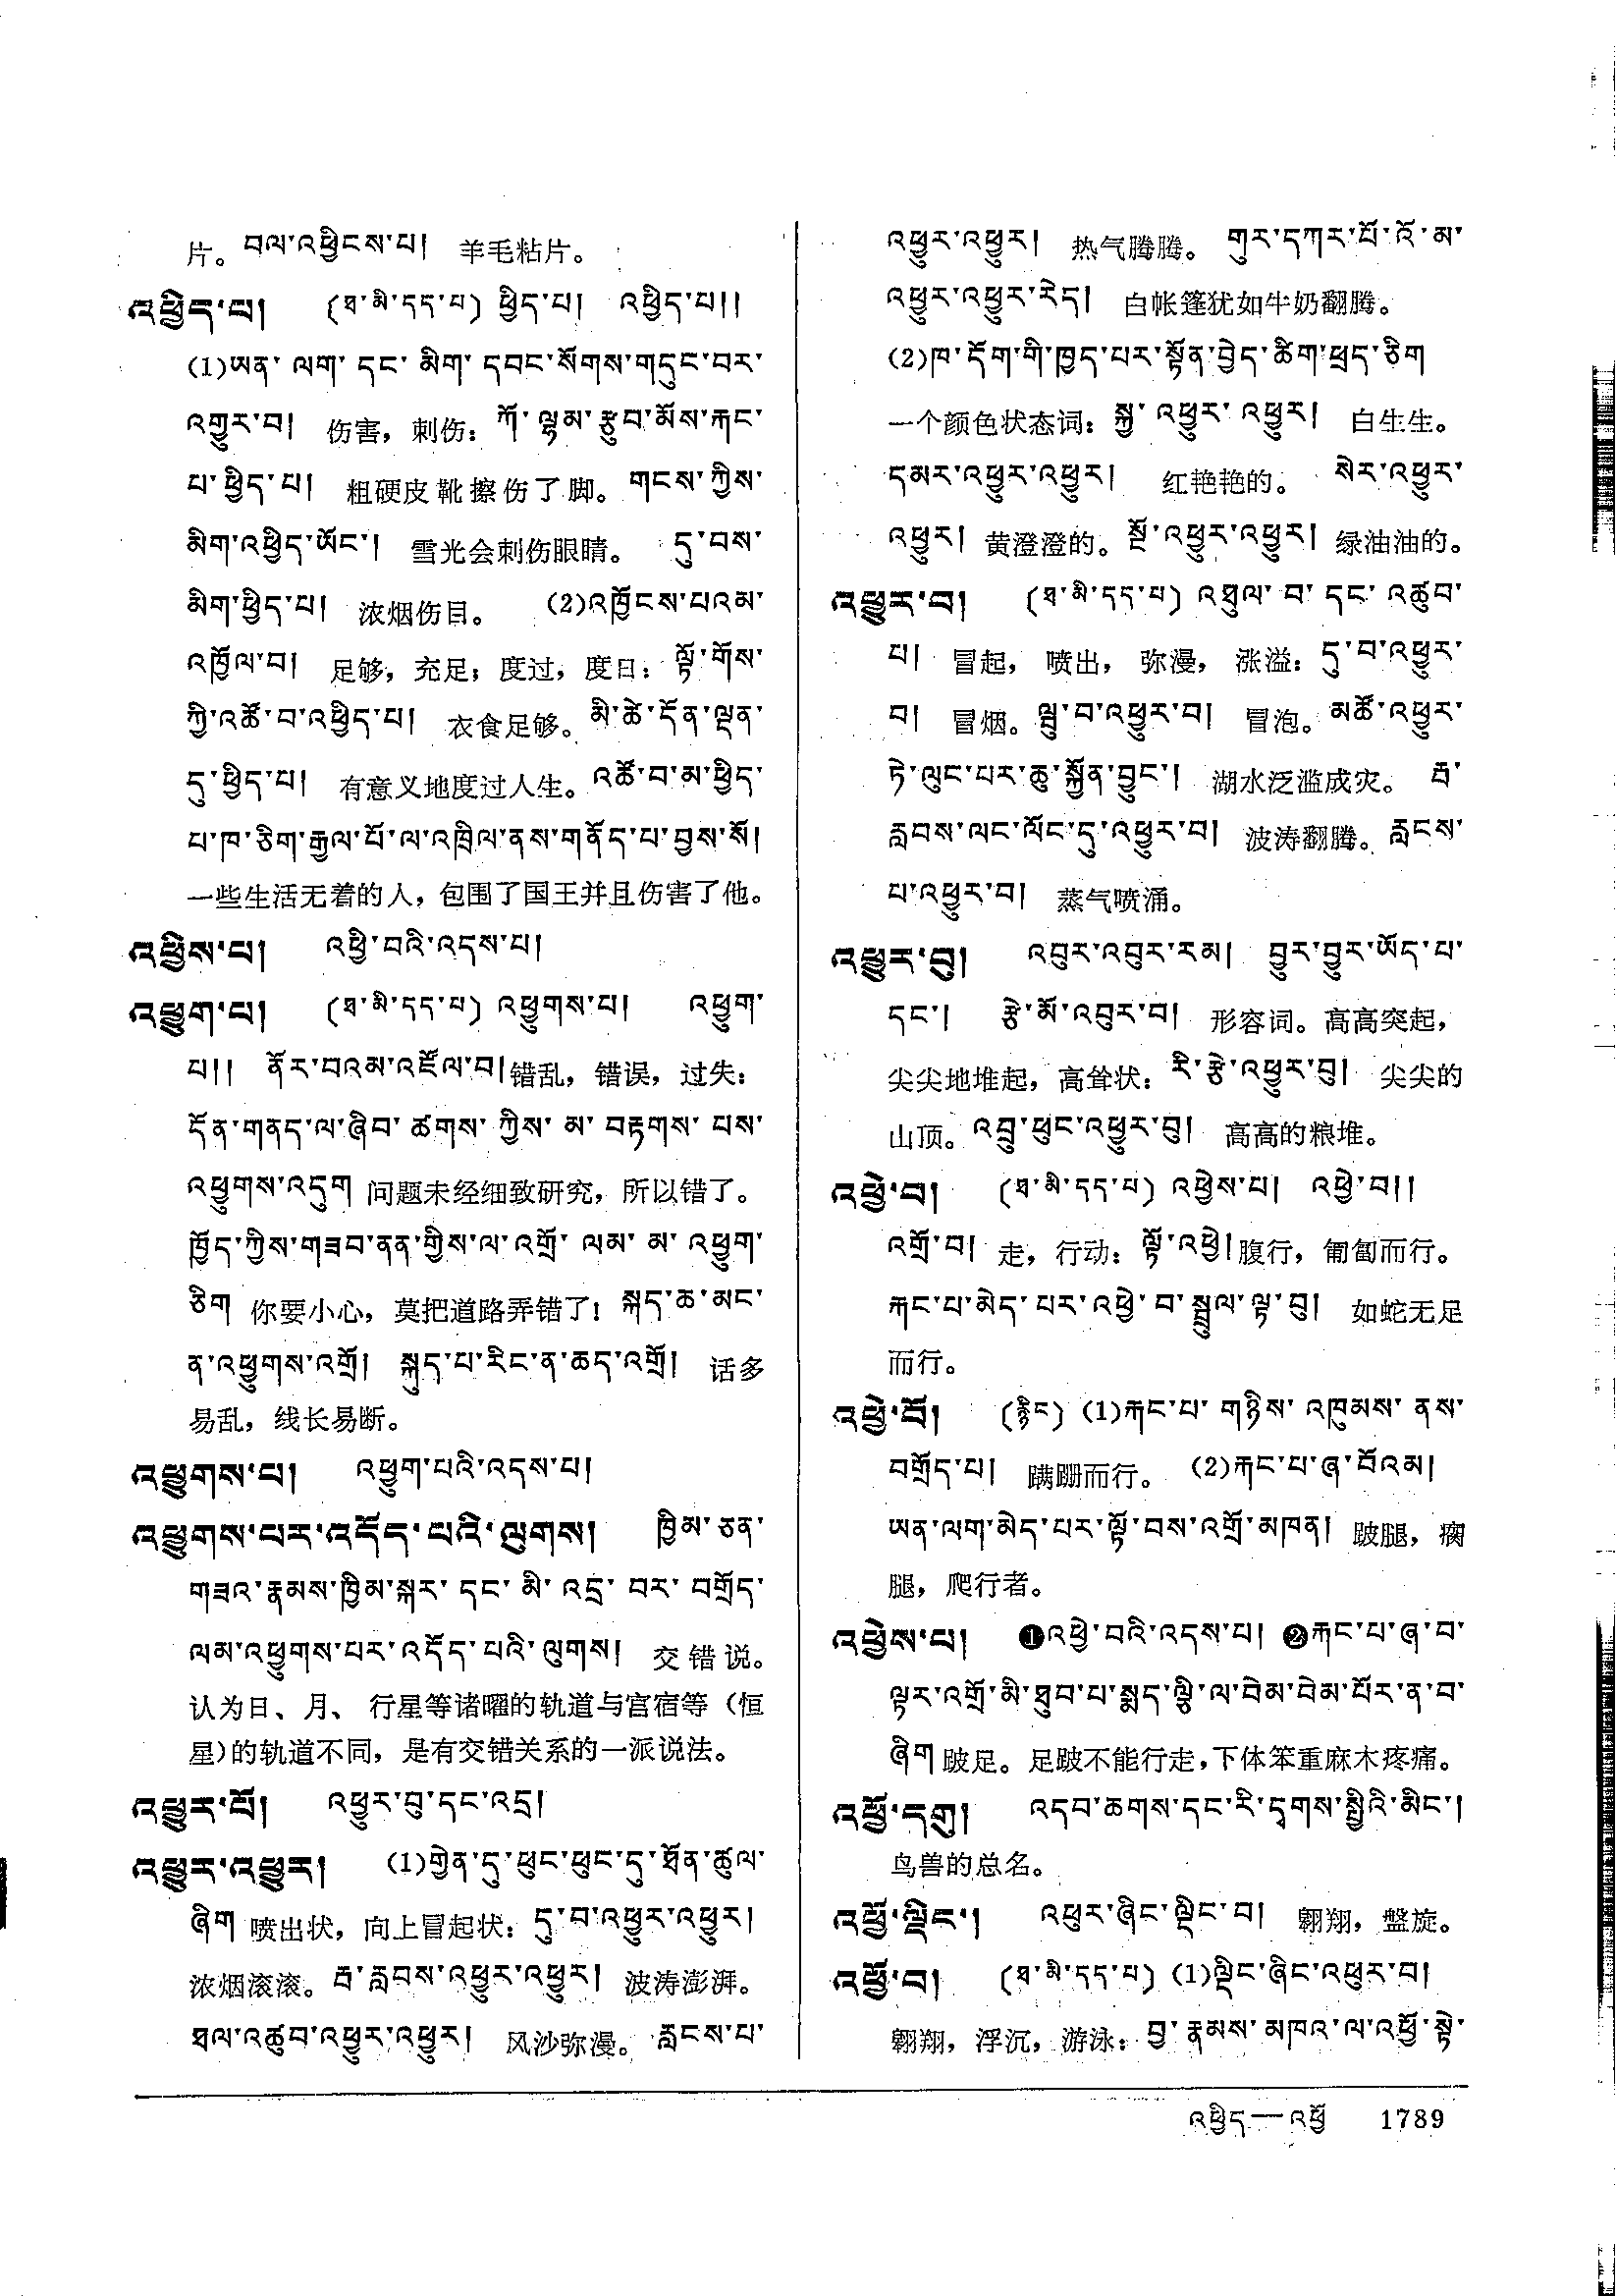 片。བལ་འཕྱིངས་པ། 羊毛粘片。
འཕྱིད་པ། (ཐ་མི་དད་པ) ཕྱིད་པ། འཕྱིད་པ།།
(1)ཡན་ ལག་ དང་ མིག་ དབང་སོགས་གདུང་བར་
འགྱུར་བ། 伤害，刺伤：ཀོ་ལྷམ་རྩུབ་མོས་རྐང་
པ་ཕྱིད་པ། 粗硬皮靴擦伤了脚。གངས་ཀྱིས་
མིག་འཕྱིད་ཡོང་། 雪光会刺伤眼睛。 དུ་བས་
མིག་ཕྱིད་པ། 浓烟伤目。 (2)འཁྱོངས་པའམ་
འཁྱོལ་བ། 足够，充足；度过，度日：ལྟོ་གོས་
ཀྱི་འཚོ་བ་འཕྱིད་པ། 衣食足够。མི་ཚེ་དོན་ལྡན་
དུ་ཕྱིད་པ། 有意义地度过人生。འཚོ་བ་མ་ཕྱིད་
པ་ཁ་ཅིག་རྒྱལ་པོ་ལ་འཁྲིལ་ནས་གནོད་པ་བྱས་སོ།
一些生活无着的人，包围了国王并且伤害了他。
འཕྱིས་པ། འཕྱི་བའི་འདས་པ།
འཕྱུག་པ། (ཐ་མི་དད་པ) འཕྱུགས་པ། འཕྱུག་
པ།། ནོར་བའམ་འཛོལ་བ།错乱，错误，过失：
དོན་གནད་ལ་ཞིབ་ ཚགས་ ཀྱིས་ མ་ བརྟགས་ པས་
འཕྱུགས་འདུག 问题未经细致研究，所以错了。
ཁྱོད་ཀྱིས་གཟབ་ནན་གྱིས་ལ་འགྲོ་ ལམ་ མ་ འཕྱུག་
ཅིག 你要小心，莫把道路弄错了！སྐད་ཆ་མང་
ན་འཕྱུགས་འགྲོ། སྐུད་པ་རིང་ན་ཆད་འགྲོ། 话多
易乱，线长易断。
འཕྱུགས་པ། འཕྱུག་པའི་འདས་པ།
འཕྱུགས་པར་འདོད་པའི་ལུགས། ཁྱིམ་ཅན་
གཟའ་རྣམས་ཁྱིམ་སྐར་ དང་ མི་ འདྲ་ བར་ བགྲོད་
ལམ་འཕྱུགས་པར་འདོད་པའི་ལུགས། 交错说。
认为日、月、行星等诸曜的轨道与宫宿等（恒
星）的轨道不同，是有交错关系的一派说法。
འཕྱུར་པོ། འཕྱུར་བུ་དང་འདྲ།
འཕྱུར་འཕྱུར། (1)གྱེན་དུ་ཕུང་ཕུང་དུ་ཐོན་ཚུལ་
ཞིག 喷出状，向上冒起状：དུ་བ་འཕྱུར་འཕྱུར།
浓烟滚滚。རྦ་རླབས་འཕྱུར་འཕྱུར། 波涛澎湃。
ཐལ་འཚུབ་འཕྱུར་འཕྱུར། 风沙弥漫。རླངས་པ་
འཕྱུར་འཕྱུར། 热气腾腾。 གུར་དཀར་པོ་འོ་མ་
འཕྱུར་འཕྱུར་རེད། 白帐篷犹如牛奶翻腾。
(2)ཁ་དོག་གི་ཁྱད་པར་སྟོན་བྱེད་ཚིག་ཕྲད་ཅིག
一个颜色状态词：སྐྱ་ འཕྱུར་ འཕྱུར། 白生生。
དམར་འཕྱུར་འཕྱུར། 红艳艳的。 སེར་འཕྱུར་
འཕྱུར། 黄澄澄的。སྔོ་འཕྱུར་འཕྱུར། 绿油油的。
འཕྱུར་བ། (ཐ་མི་དད་པ) འཐུལ་བ་ དང་ འཚུབ་
པ། 冒起，喷出，弥漫，涨溢：དུ་བ་འཕྱུར་
བ། 冒烟。ལྦུ་བ་འཕྱུར་བ། 冒泡。མཚོ་འཕྱུར་
ཏེ་ལུང་པར་ཆུ་སྐྱོན་བྱུང་། 湖水泛滥成灾。 རྦ་
རླབས་ལང་ལོང་དུ་འཕྱུར་བ། 波涛翻腾。རླངས་
པ་འཕྱུར་བ། 蒸气喷涌。
འཕྱུར་བུ། འབུར་འབུར་རམ། བྱུར་བྱུར་ཡོད་པ་
དང་། རྩེ་མོ་འབུར་བ། 形容词。高高突起，
尖尖地堆起，高耸状：རི་རྩེ་འཕྱུར་བུ། 尖尖的
山顶。འབྲུ་ཕུང་འཕྱུར་བུ། 高高的粮堆。
འཕྱེ་བ། (ཐ་མི་དད་པ) འཕྱེས་པ། འཕྱེ་བ།།
འགྲོ་བ། 走，行动：ལྟོ་འཕྱེ།腹行，匍匐而行。
རྐང་པ་མེད་པར་འཕྱེ་བ་སྦྲུལ་ལྟ་བུ། 如蛇无足
而行。
འཕྱེ་བོ། (རྙིང) (1)རྐང་པ་ གཉིས་ འཁུམས་ ནས་
བགྲོད་པ། 蹒跚而行。 (2)རྐང་པ་ཞ་བོའམ།
ཡན་ལག་མེད་པར་ལྟོ་བས་འགྲོ་མཁན། 跛腿，瘸
腿，爬行者。
འཕྱེས་པ། ❶འཕྱེ་བའི་འདས་པ། ❷རྐང་པ་ཞ་བ་
ལྟར་འགྲོ་མི་ཐུབ་པ་སྨད་ལྕི་ལ་བེམ་བེམ་པོར་ན་བ་
ཞིག 跛足。足跛不能行走，下体笨重麻木疼痛。
འཕྱོ་དགུ། འདབ་ཆགས་དང་རི་དྭགས་སྤྱིའི་མིང་།
鸟兽的总名。
འཕྱོ་ལྡིང་། འཕུར་ཞིང་ལྡིང་བ། 翱翔，盘旋。
འཕྱོ་བ། (ཐ་མི་དད་པ) (1)ལྡིང་ཞིང་འཕུར་བ།
翱翔，浮沉，游泳：བྱ་རྣམས་མཁའ་ལ་འཕྱོ་སྟེ་
འཕྱིད—འཕྱོ 1789